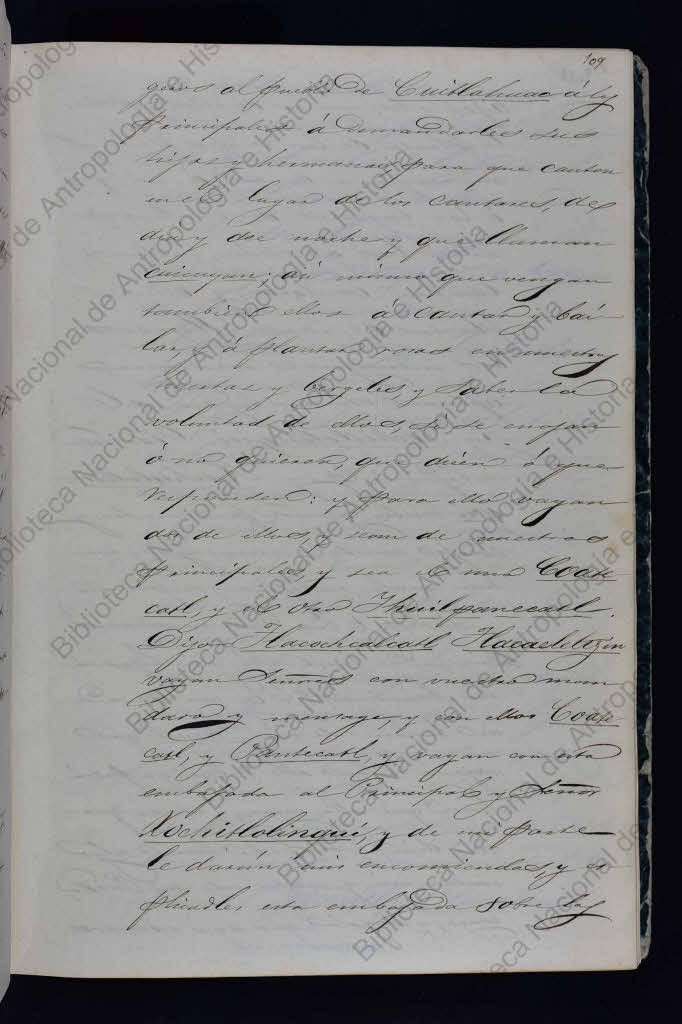 109
geros al pueblo de Cuitlahuac á los
Principales á demandarles sus
hijas y hermanas para que canten
en el lugar de los cantares, de
dia y de noche y que llaman
cuicuyan; así mismo que vengan
tambien ellos á cantar y bai
lar, y á plantar rosas en nuestras
huertas y bergeles, y saber la
voluntad de ellos, si se enojan
ó no quieren, que dicen ó que
responden: y para ello vayan
dos de ellos, y sean de nuestros
principales, y sea el uno Coate
catl, y el otro Ihuilpanecatl.
Dijo Tlacochcalcatl Tlacaeleltzin
vayan Señores con vuestro man
dato y mensage, y con ellos Coate
catl, y Pantecatl, y vayan con esta
embajada al Principal y Señor
Xochitlolinqui, y de mi parte
le darán mis encomiendas, y es
plicadles esta embajada sobre las
Biblioteca Nacional de Antropología e Historia